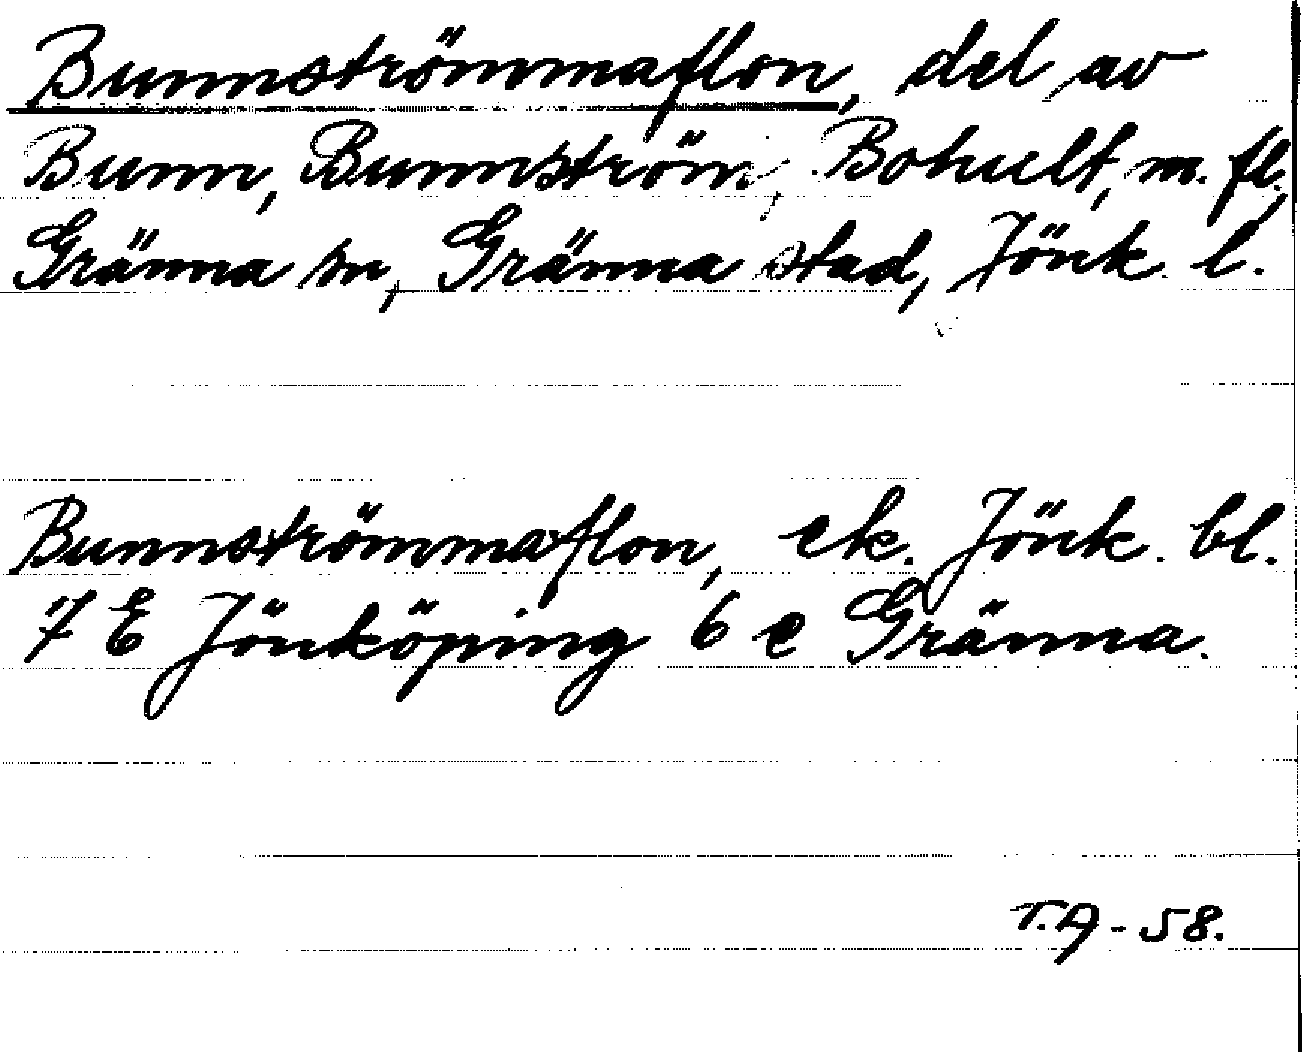 Bunnströmmaflon, del av
Bunn, Bunnström, Bohult, m. fl.,
Gränna sn, Gränna stad, Jönk. l.
Bunnströmmaflon, ek. Jönk. bl.
7 E Jönköping 6 e Gränna.
T.A - 58.